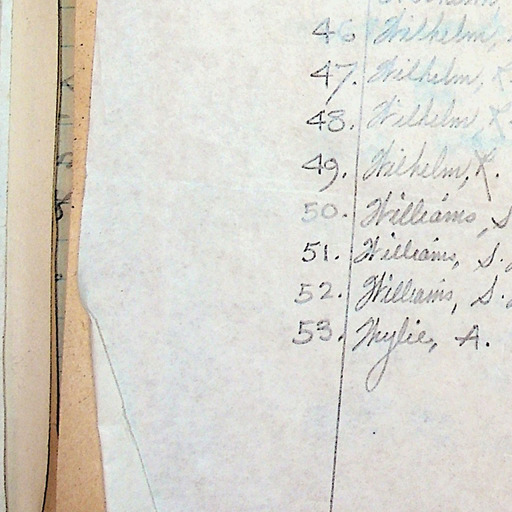 46 Wilhelm,
47. Wilhelm, K
48. Wilhelm, K
49. Wilhelm, K.
50. Williams, S
51. Williams, S.
52. Williams, S.
53. Wylie, A.